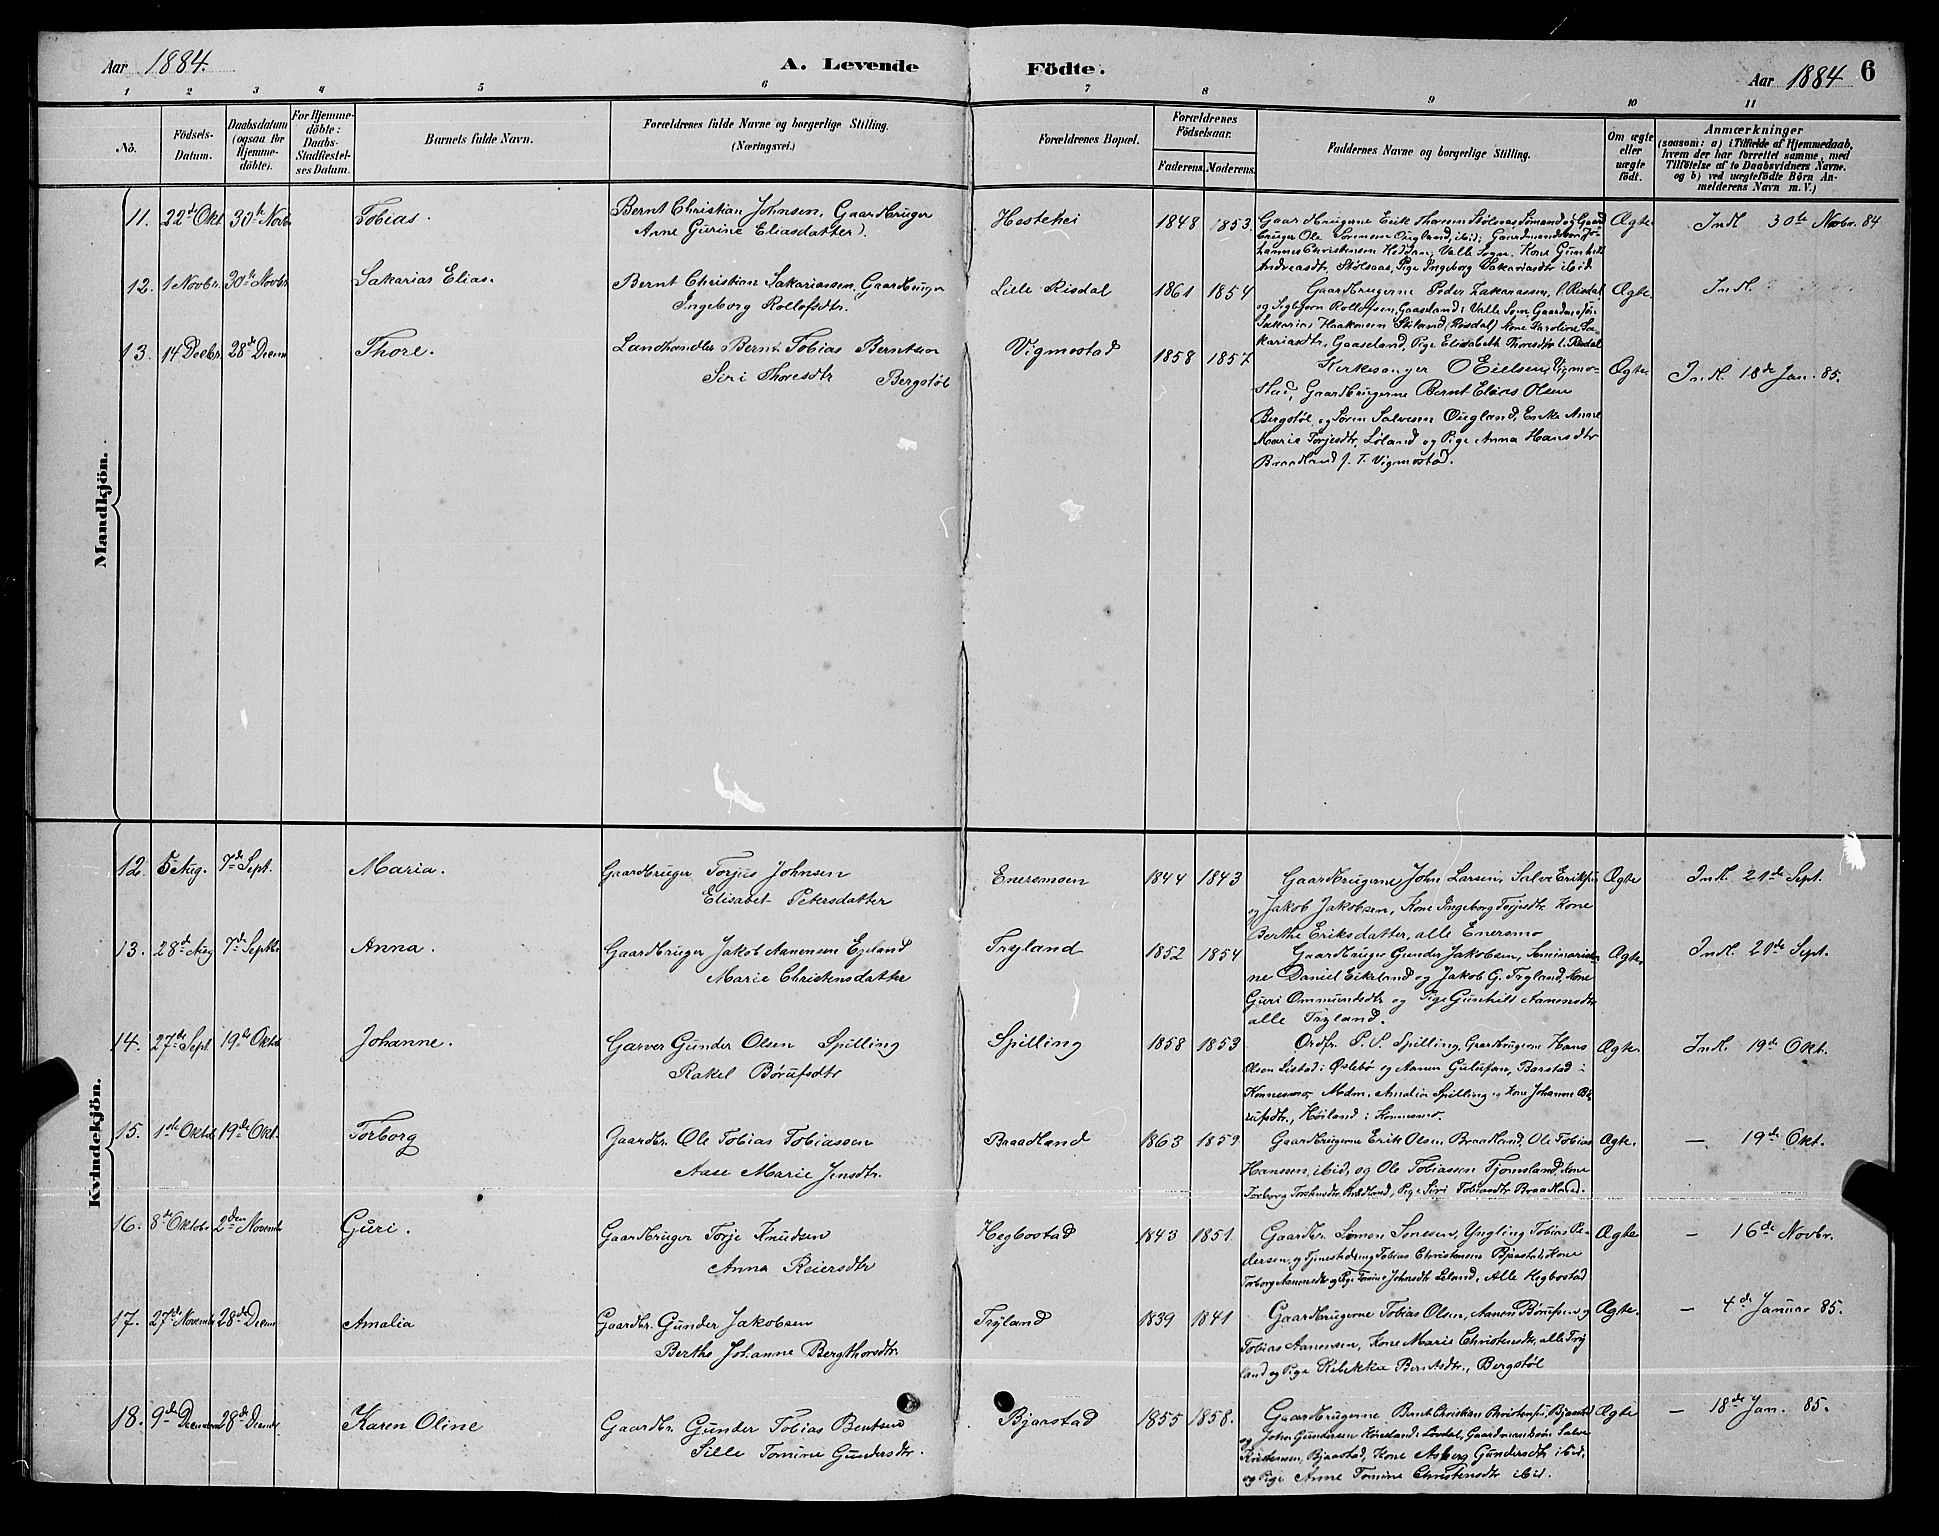 Aar 1884.
A. Levende Födte.
Aar 1884 6
1 2 3 4 5 6 7 8 9 10 11
No.
Födsels-Datum.
Daabsdatum (ogsaa for Hjemmedöbte).
For Hjemmedöbte: Daabs-Stadfæstelses Datum.
Barnets fulde Navn.
Forældrenes fulde Navne og borgerlige Stilling.
(Næringsvei.)
Forældrenes Bopæl.
Forældrenes Födselsaar.
Faderens. Moderens.
Faddernes Navne og borgerlige Stilling.
Om ægte eller uægte födt.
Anmærkninger
(saasom: a) i Tilfælde af Hjemmedaab,
hvem der har forrettet samme, med
Tilföielse af to Daabsvidners Navne.
og b) ved uægtefödte Börn An-
melderens Navn m. V.)
Mandkjön.
11. 22de Okt 30te Novbr Tobias.
Bernt Christian Johnsen, Gaardbruger
Anne Gurine Eliasdatter).
Hestehei 1848 1853.
Gaardbrugerne Erik Thoresen Stölsaas Sömand og Gaard
bruger Ole Sörensen Öugland, ibid; Gaardmandssön Jo-
hannes Christensen Heddan, Valle Sogn, Kone Gunhild
Andreasdtr, Stölsaas, Pige Ingeborg Sakariasdtr ibid
Ægte Indl. 30te Novbr. 84
12. 1 Novbr. 30te Novbr Sakarias Elias.
Bernt Christian Sakariassen, Gaardbruger
Ingeborg Rollofsdtr.
Lille Risdal 1861 1854
Gaardbrugerne Peder Zakariassen, l. Risdal
og Sigbjørn Rollofsen, Gaaseland i Valle Sogn, Gaardmandssön
Sakarias Haakonsen Röiland, (Rosdal) Kone Karoline Sa-
kariasdtr, Gaaseland, Pige Elisabeth Thoresdtr l. Risdal
Ægte. Indl.
13. 14 Decbr. 28de Decem Thore.
Landhandler Bernt Tobias Berntsen
Siri Thoresdtr Bergstöl
Vigmostad 1858 1857
Kirkesanger O Eielsen, Vigmo-
stad, Gaardbrugerne Bernt Elias Olsen
Bergstöl, og Sören Salvesen Öugland, Enke Anne
Marie Torjesdtr, Löland og Pige Anna Hansdtr
Braadland f. T. Vigmostad.
Ægte Indl. 18de Jan. 85.
Kvindekjön.
12. 5 Aug. 7de Sept. Maria.
Gaardbruger Torjus Johnsen
Elisabet Petersdatter
Enersmoen 1844 1843
Gaardbrugerne John Larsen, Salve Eriksen
og Jakob Jakobsen, Kone Ingeborg Torjesdtr Kone
Berthe Eriksdatter, alle Enersmo
Ægte Indl. 21de Sept.
13. 28de Aug 7de Septbr Anna.
Gaardbruger Jakob Aanensen Egeland
Marie Christensdatter
Tryland 1852 1854
Gaardbruger Gunder Jakobsen, Seminariste-
ne Daniel Eikeland og Jakob G. Tryland, Kone
Guri Ommundsdtr og Pige Gunhild Aanensdtr
alle Tryland.
Ægte Indl. 21de Sept.
14. 27de Sept 19de Oktbr Johanne.
Garver Gunder Olsen Spilling
Rakel Börufsdtr
Spilling 1858 1853
Ordfr. P. S. Spilling, Gaardbrugerne Hans
Olsen Listad i Öslebö og Aanen Gulufsen, Barstad i
Konnesmo, Mdm. Amalia Spilling og Kone Johanne Bö-
rufsdtr., Höiland i Konnesmo.
Ægte. Indl. 19de Okt.
15. 1ste Oktbr 19de Okt. Torborg
Gaardbr. Ole Tobias Tobiassen
Aase Marie Jensdtr.
Braadland 1863 1859.
Gaardbrugerne Erik Olsen, Braadland, Ole Tobias
Hansen, ibid, og Ole Tobiassen Tjomsland, Kone
Torborg Torstensdtr, Bradland, Pige Siri Tobiasdtr Braadland.
Ægte. – 19de Okt.
16. 8de Oktober 2den Novemb Guri.
Gaardbruger Torje Knudsen
Anna Reiersdtr
Hegbostad 1843 1851.
Gaardbr. Simon Simensen, Yngling Tobias Pe-
dersen og Tjenestedreng Tobias Christensen Bjaastad, Kone
Torborg Aanensdtr og Pige Tomine Johnsdtr Leland, Alle Hegbostad
Ægte – 16de Novbr.
17. 27de Novemb 28de Decem Amalia
Gaardbr. Gunder Jakobsen
Berthe Johanne Bergthorsdtr.
Tryland 1839 1841
Gaardbrugerne Tobias Olsen, Aanen Börufsen og
Tobias Aanensen, Kone Marie Christensdtr, alle Try
land og Pige Rebekka Berntsdtr., Bergstöl
Ægte. – 4de Januar 85.
18. 9de Decemb 28de Decbr Karen Oline
Gaardbr. Gunder Tobias Bentsen
Sille Tomine Gundersdtr.
Bjaastad 1855 1858.
Gaardbrugerne Bernt Christian Christensen, Bjaastad
og John Gundersen Höneland i Laudal, Gaardmandssön Salve
Kristensen, Bjaastad, Kone Asborg Gundersdtr ibid,
og Pige Anne Tomine Christensdtr ibid.
Ægte – 18de Jan. 85.